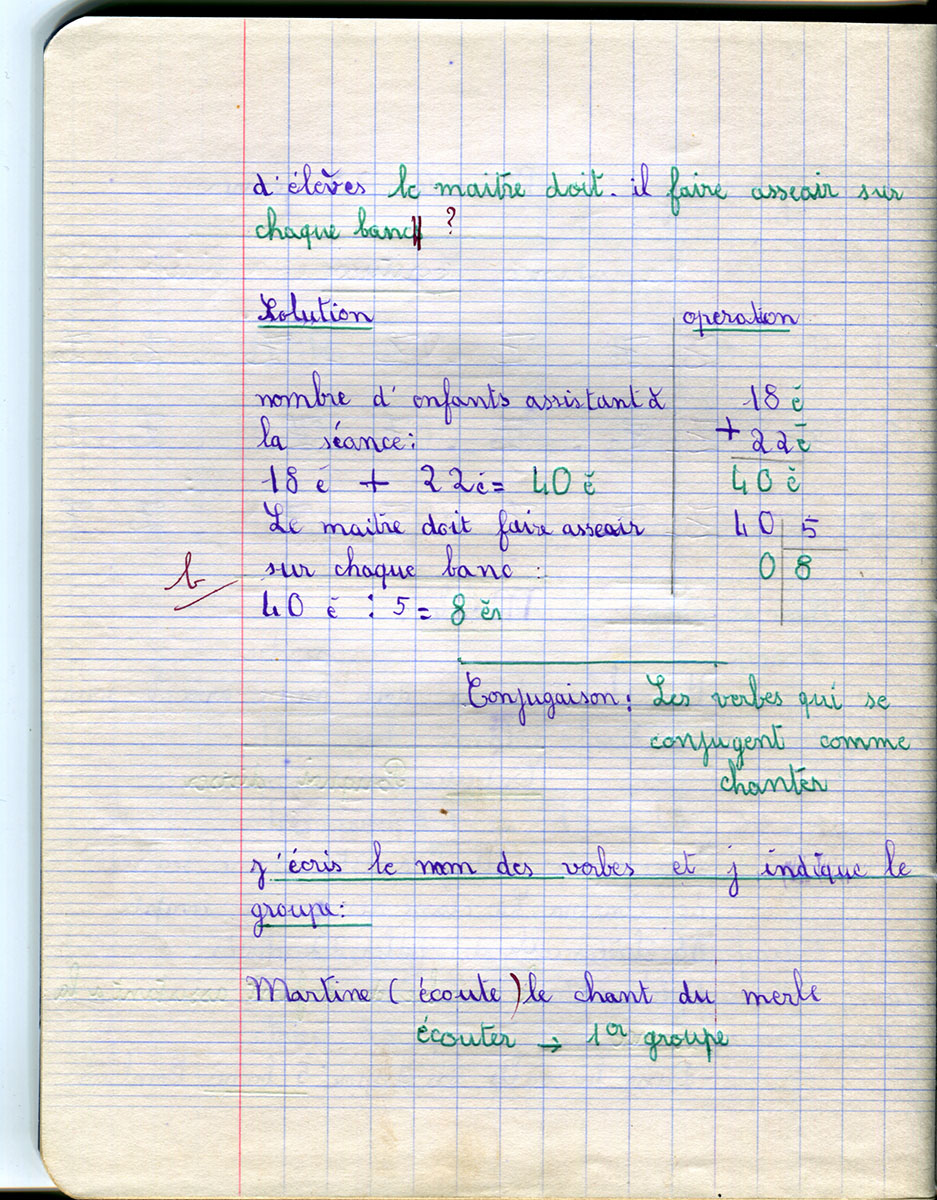 d'élèves le maitre doit-il faire asseair sur
chaque banc ?
Solution
operation
nombre d'enfants assistant à
la séance:
18 é + 22é = 40 é
Le maitre doit faire asseair
sur chaque banc :
40 é : 5 = 8 és
18 é
+ 22é
40 é
40 5
0 8
Conjugaison: Les verbes qui se
conjugent comme
chanter
j'écris le nom des verbes et j indique le
groupe:
Martine (écoute) le chant du merle
écouter → 1er groupe